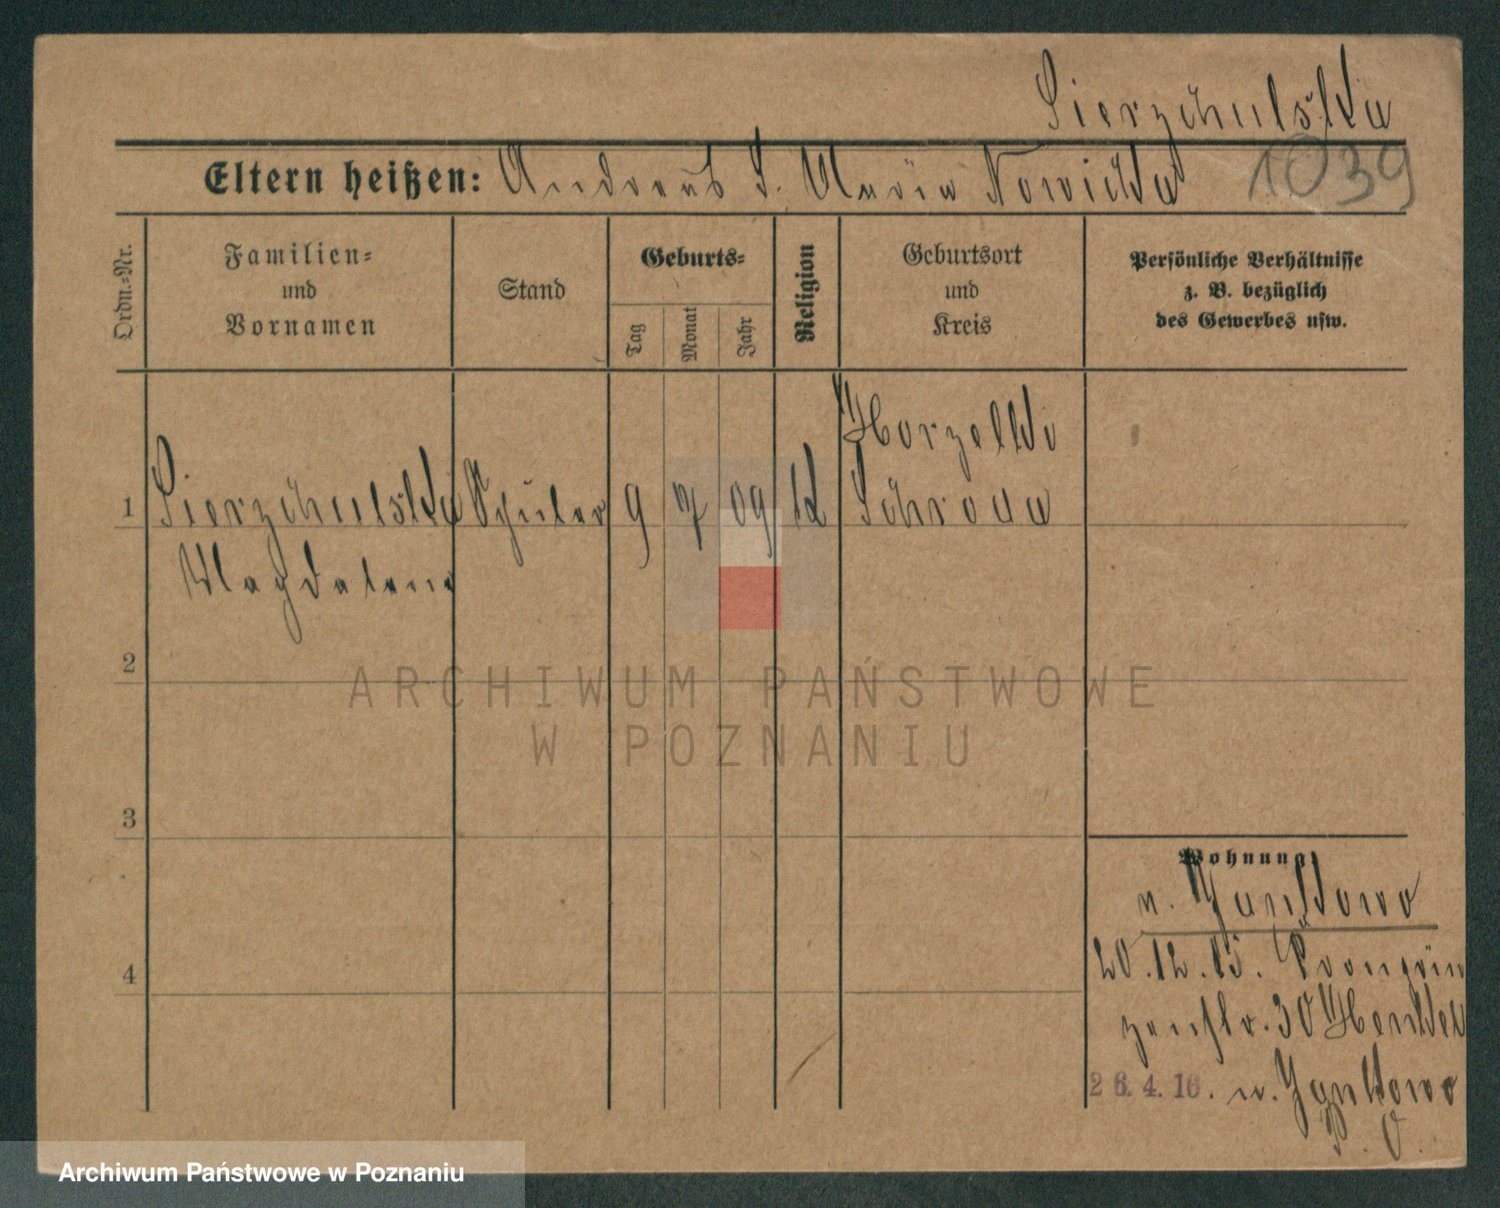 Sierzchulska
Eltern heißen: Andreas S. Maria Nowicka 1039
Ordn.-Nr.
Familien-
und
Vornamen
Stand
Geburts-
Tag
Monat
Jahr
Religion
Geburtsort
und
Kreis
Persönliche Verhältnisse
z. B. bezüglich
des Gewerbes usw.
1 Sierzchulska Schüler 9 7 09 k Schroda
Magdalena
2
3
4
Wohnung:
n. Jankowo
20.12.15. Kronprin
zenstr. 30
26.4.16. n. Jankowo
P. O.
ARCHIWUM PAŃSTWOWE
W POZNANIU
Archiwum Państwowe w Poznaniu